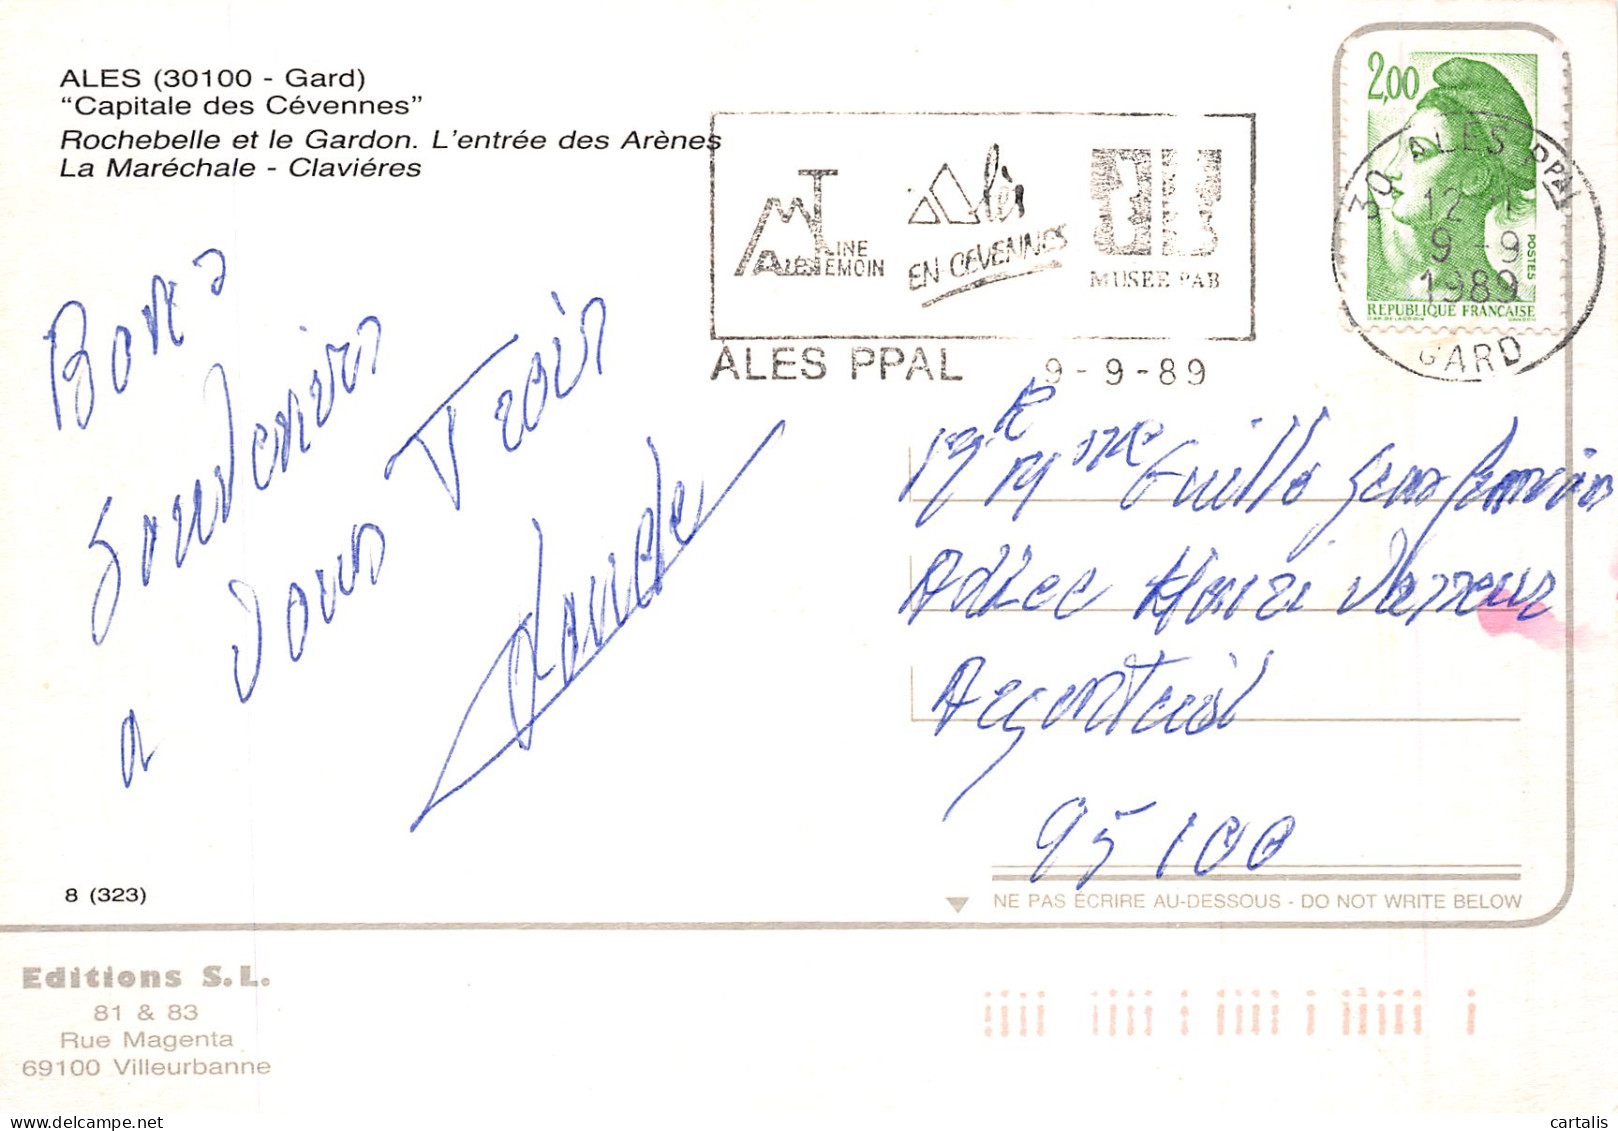 ALES (30100 - Gard)
“Capitale des Cévennes”
Rochebelle et le Gardon. L'entrée des Arènes
La Maréchale - Claviéres
MINE TEMOIN
ALES
Alès
EN CEVENNES
MUSEE PAB
ALES PPAL 9-9-89
2,00
POSTES
REPUBLIQUE FRANCAISE
30 ALES PPAL
12 H
9 -9
1989
GARD
Bons
Souvenirs
a vous Trois
Mr Mme Guillo Jean
Allee Henri Vasseur
Argenteuil
95100
8 (323)
NE PAS ÉCRIRE AU-DESSOUS - DO NOT WRITE BELOW
Editions S.L.
81 & 83
Rue Magenta
69100 Villeurbanne
cartalis